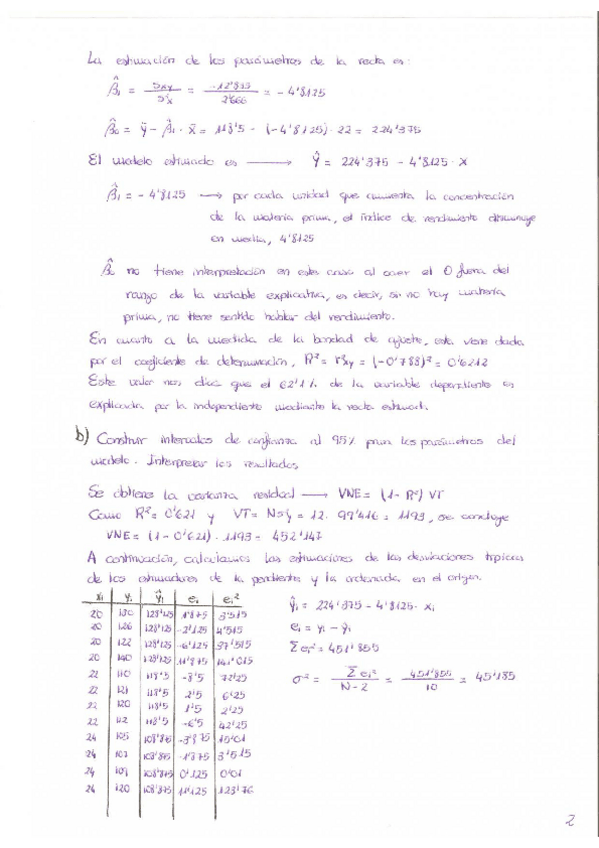 La estimación de los parámetros de la recta es:
β̂₁ = Sxy / S²x = -12'833 / 2'666 = -4'8125
β̂₀ = ȳ - β̂₁ · x̄ = 118'5 - (-4'8125) · 22 = 224'375
El modelo estimado es ⟶ Ŷ = 224'375 - 4'8125 · X
β̂₁ = -4'8125 ⟶ por cada unidad que aumenta la concentración
de la materia prima, el índice de rendimiento disminuye
en media, 4'8125
β̂₀ no tiene interpretación en este caso al caer el 0 fuera del
rango de la variable explicativa, es decir, si no hay materia
prima, no tiene sentido hablar del rendimiento.
En cuanto a la medida de la bondad de ajuste, esta viene dada
por el coeficiente de determinación, R² = r²xy = (-0'788)² = 0'6212
Este valor nos dice que el 62'1% de la variable dependiente es
explicada por la independiente mediante la recta estimad.
b) Construir intervalos de confianza al 95% para los parámetros del
modelo. Interpretar los resultados
Se obtiene la varianza residual ⟶ VNE = (1 - R²) VT
Como R² = 0'621 y VT = NS²y = 12 · 99'416 = 1193, se concluye
VNE = (1 - 0'621) · 1193 = 452'147
A continuación, calculamos las estimaciones de las desviaciones típicas
de los estimadores de la pendiente y la ordenada en el origen.
xi | yi | ŷi | ei | ei²
20 | 130 | 128'125 | 1'875 | 3'515
20 | 126 | 128'125 | -2'125 | 4'515
20 | 122 | 128'125 | -6'125 | 37'515
20 | 140 | 128'125 | 11'875 | 141'015
22 | 110 | 118'5 | -8'5 | 72'25
22 | 121 | 118'5 | 2'5 | 6'25
22 | 120 | 118'5 | 1'5 | 2'25
22 | 112 | 118'5 | -6'5 | 42'25
24 | 105 | 108'875 | -3'875 | 15'01
24 | 107 | 108'875 | -1'875 | 3'515
24 | 109 | 108'875 | 0'125 | 0'01
24 | 120 | 108'875 | 11'125 | 123'76
ŷi = 224'375 - 4'8125 · xi
ei = yi - ŷi
Σei² = 451'855
σ² = Σei² / N-2 = 451'855 / 10 = 45'185
2